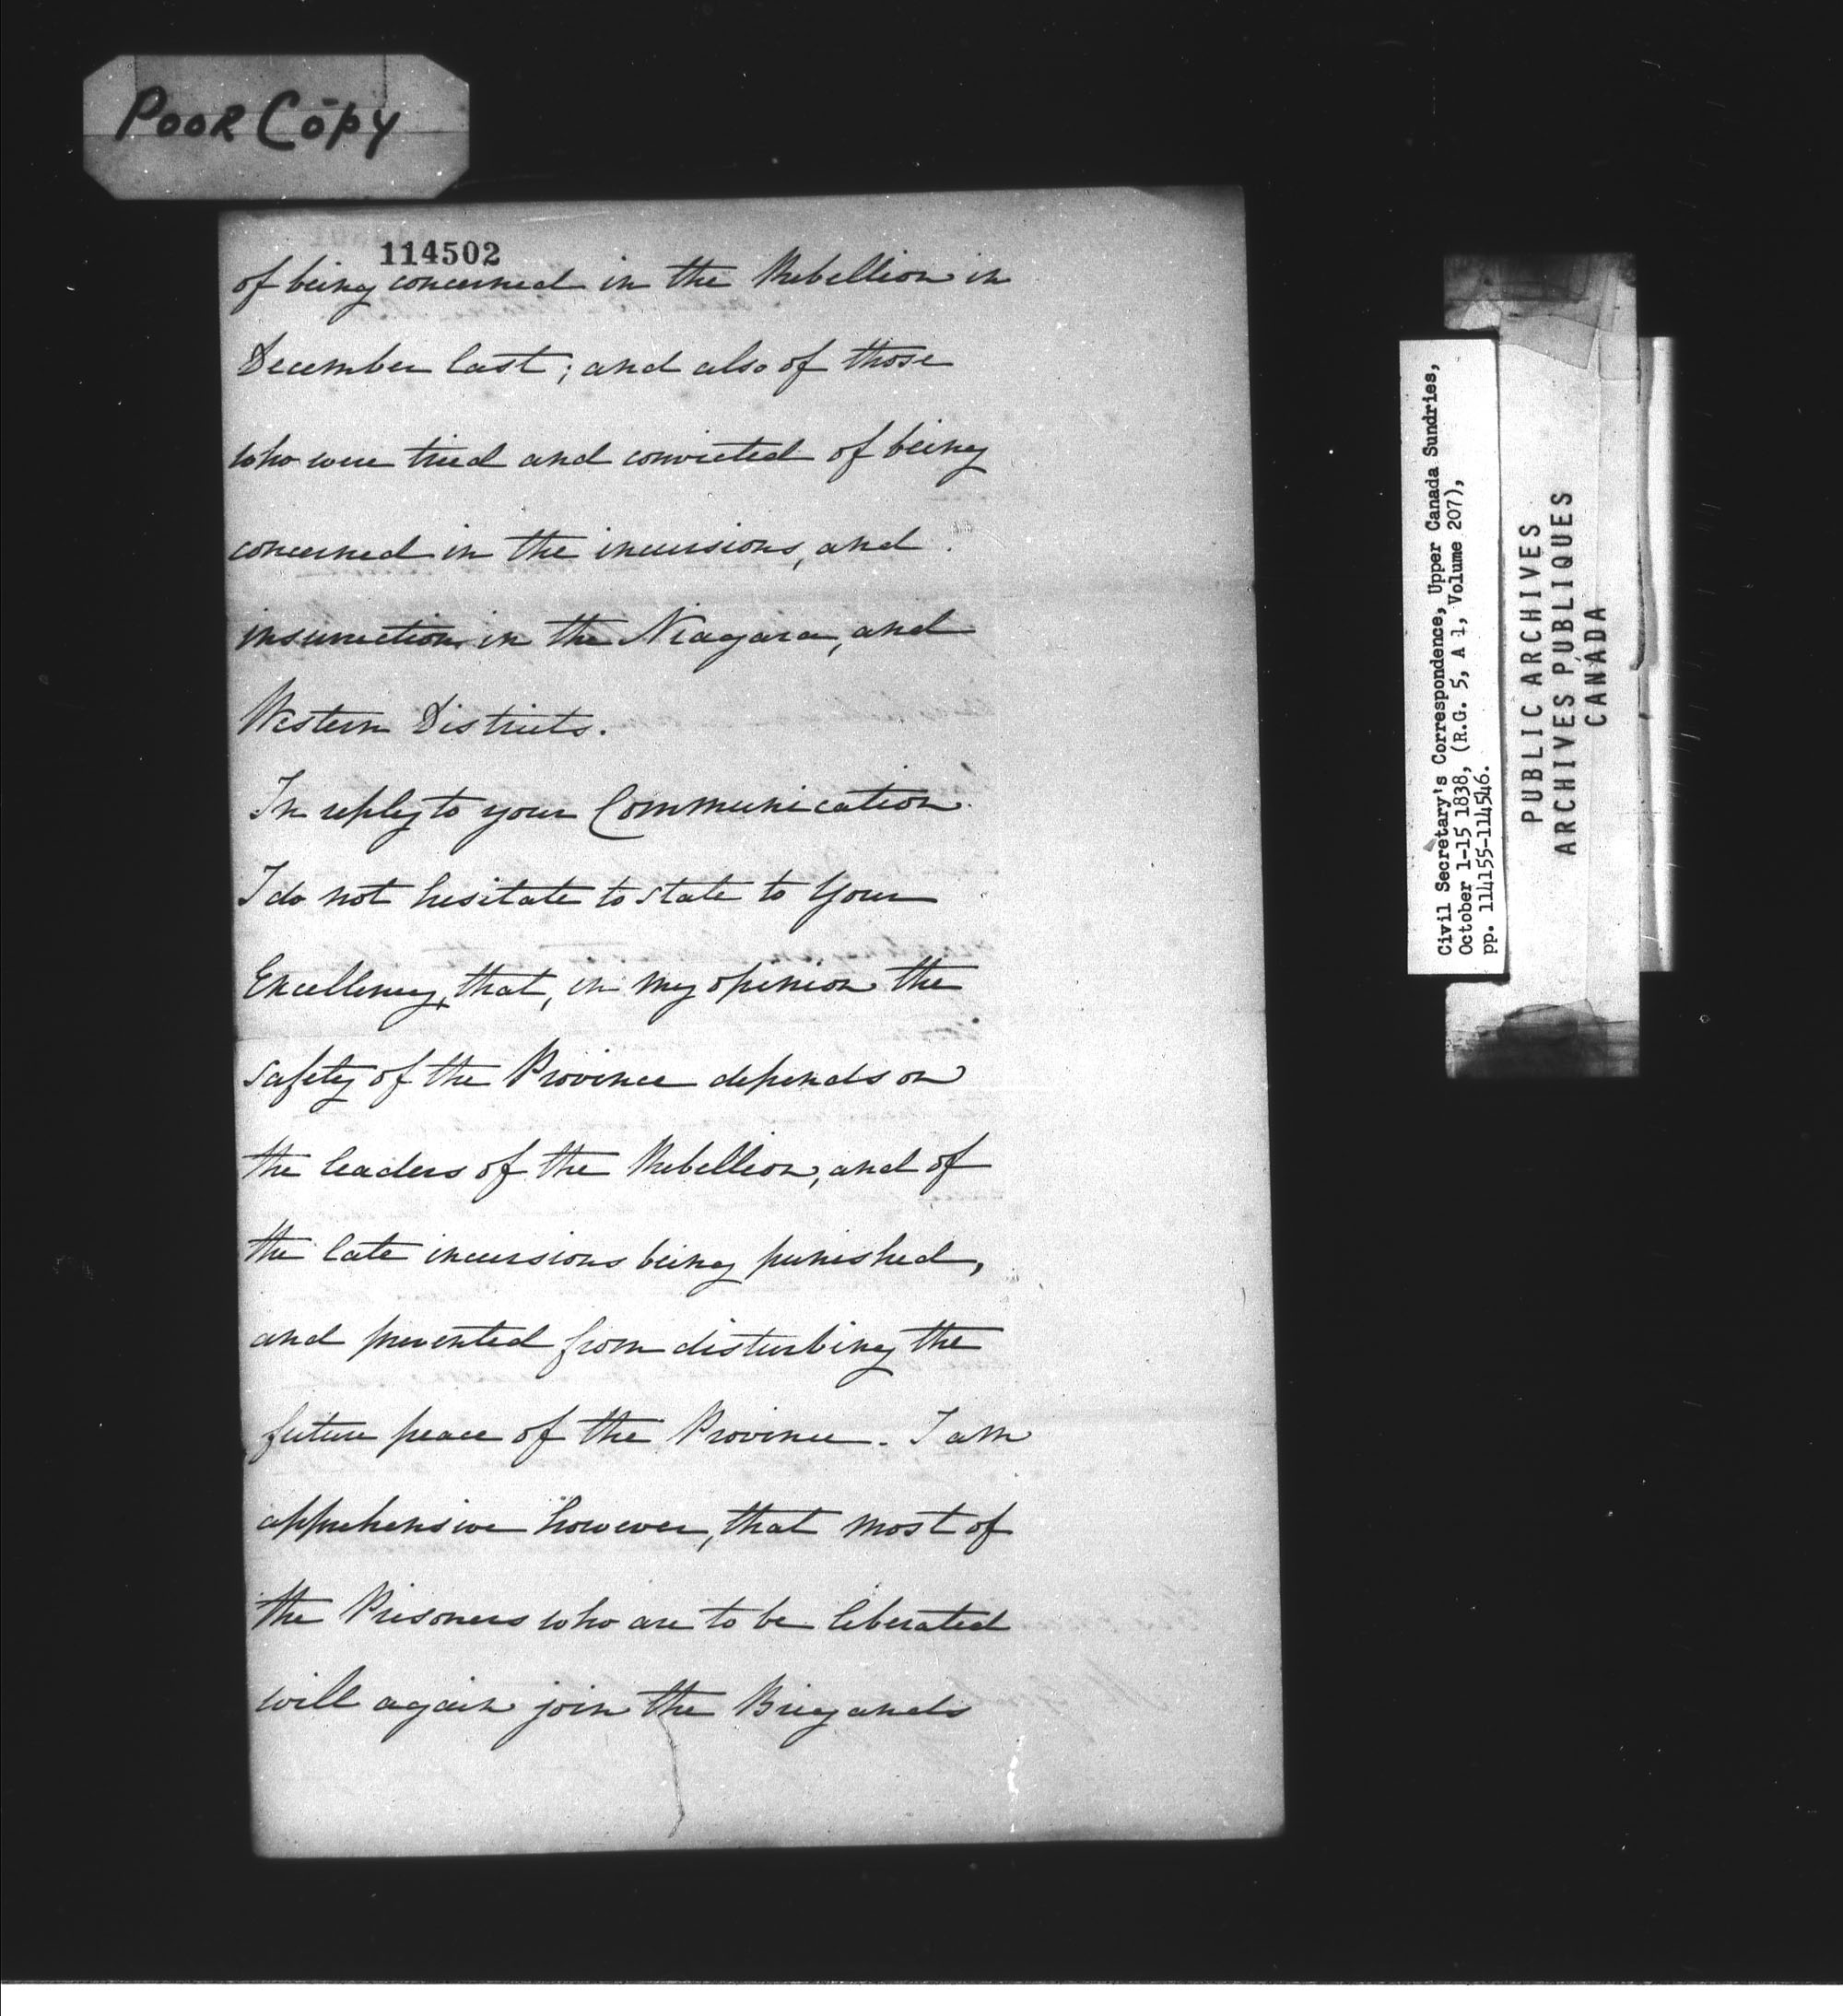 Poor Copy
114502
of being concerned in the Rebellion in
December last; and also of those
who were tried and convicted of being
concerned in the incursions, and
insurrection in the Niagara, and
Western Districts.
In reply to your Communication
I do not hesitate to state to Your
Excellency, that, in my opinion the
safety of the Province depends on
the leaders of the Rebellion, and of
the late incursions being punished,
and prevented from disturbing the
future peace of the Province. I am
apprehensive however, that most of
the Prisoners who are to be liberated
will again join the Brigands
Civil Secretary's Correspondence, Upper Canada Sundries,
October 1-15 1838, (R.G. 5, A 1, Volume 207),
pp. 114155-114546.
PUBLIC ARCHIVES
ARCHIVES PUBLIQUES
CANADA